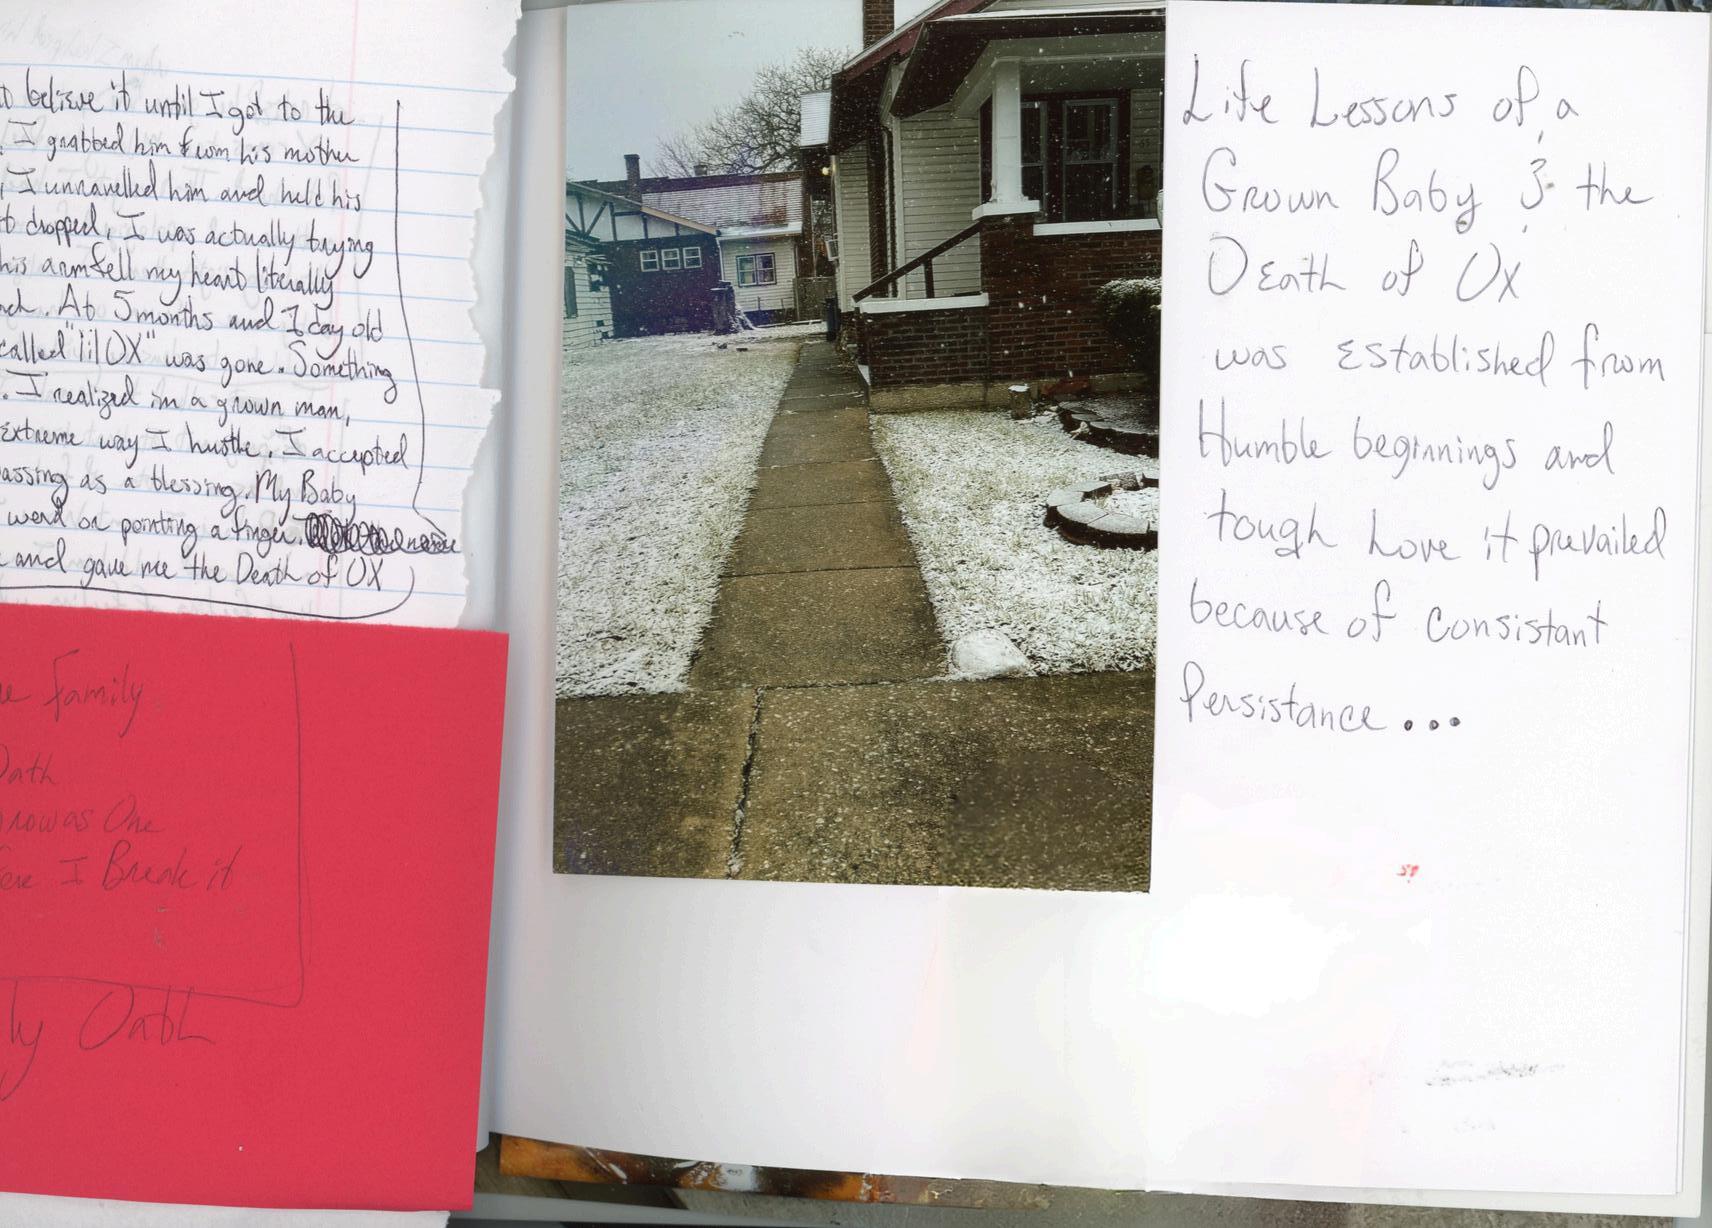 believe it until I got to the
. I grabbed him from his mother
, I unravelled him and held his
dropped, I was actually trying
his arm fell my heart literally
. At 5 months and 1 day old
called "lil OX" was gone. Something
. I realized im a grown man,
Extreme way I hustle. I accepted
passing as a blessing. My Baby
word or pointing a finger.
and gave me the Death of OX
Family
Oath
Grow as One
I Break it
Oath
Life Lessons of a
Grown Baby & the
Death of Ox
was Established from
Humble beginnings and
tough Love it prevailed
because of Consistant
Persistance...